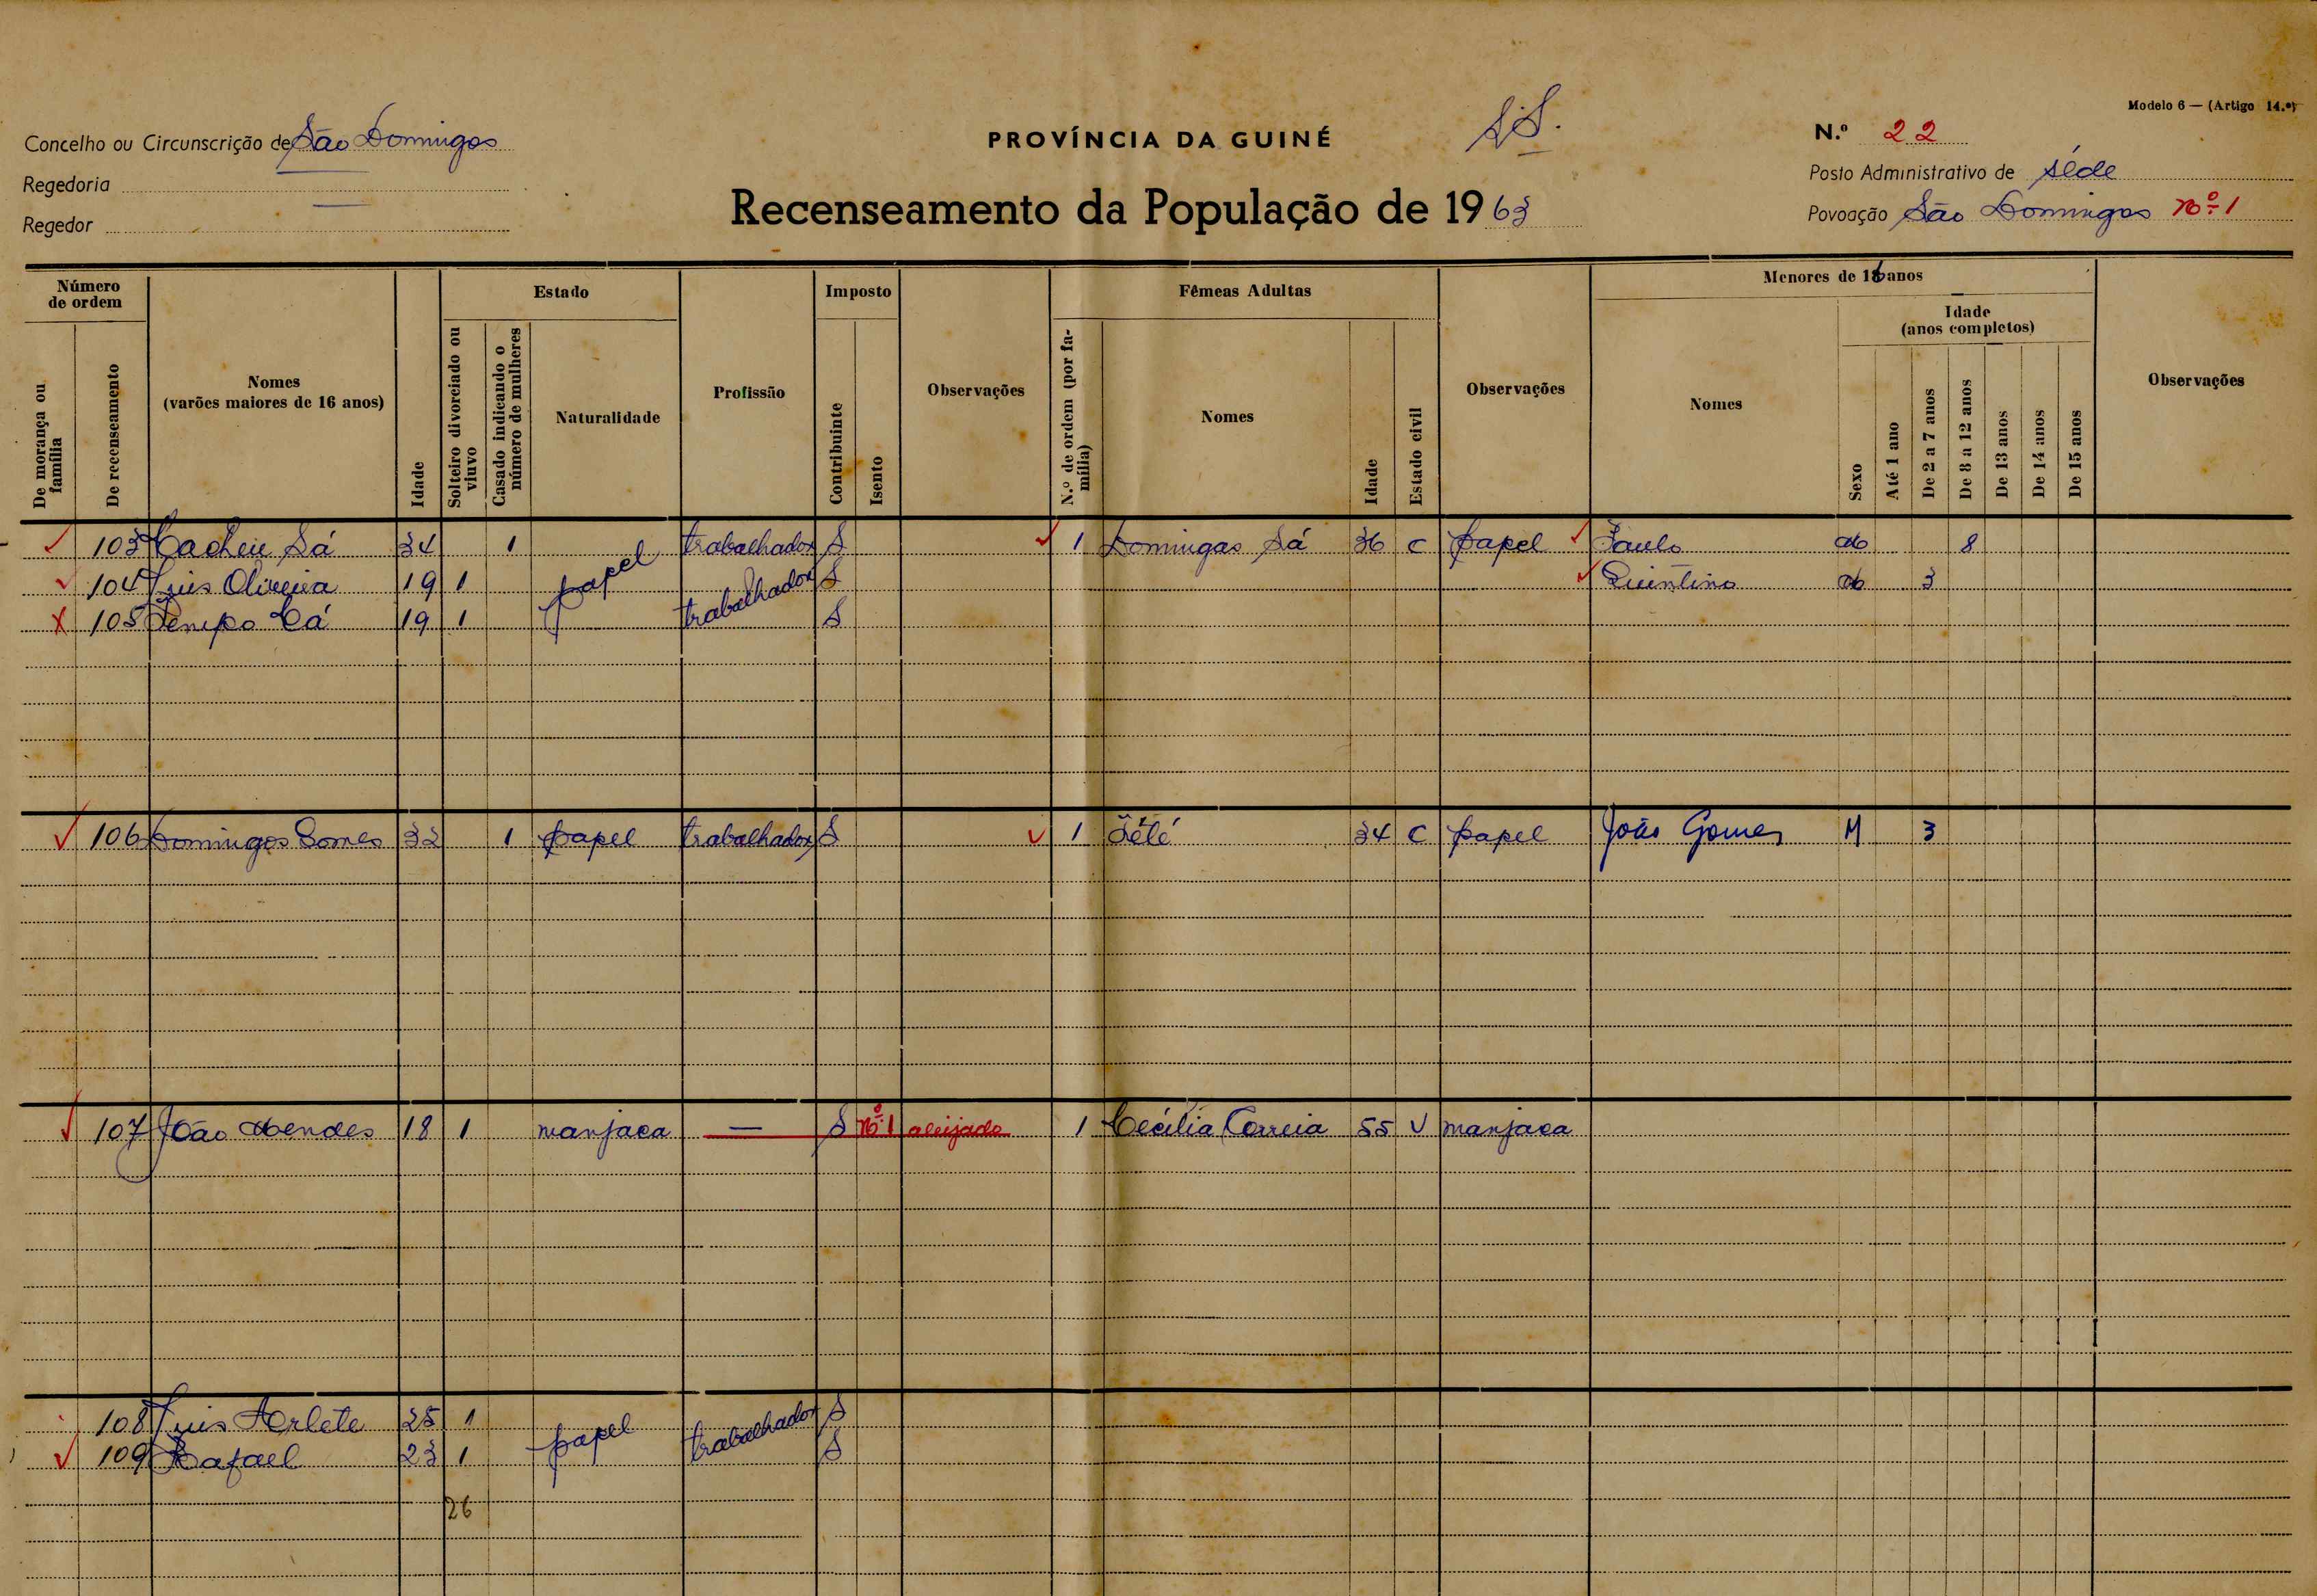 Modelo 6 — (Artigo 14.º)
Concelho ou Circunscrição de São Domingos
PROVÍNCIA DA GUINÉ
N.º 22
Regedoria —
Posto Administrativo de séde
Regedor
Recenseamento da População de 1963
Povoação São Domingos nº 1
Número de ordem
Estado
Imposto
Fêmeas Adultas
Menores de 16 anos
Idade
(anos completos)
De morança ou família
De recenseamento
Nomes
(varões maiores de 16 anos)
Idade
Solteiro divorciado ou viuvo
Casado indicando o número de mulheres
Naturalidade
Profissão
Contribuinte
Isento
Observações
N.º de ordem (por família)
Nomes
Idade
Estado civil
Observações
Nomes
Sexo
Até 1 ano
De 2 a 7 anos
De 8 a 12 anos
De 13 anos
De 14 anos
De 15 anos
Observações
103 Cacheu Sá 34 1 papel trabalhador S 1 Domingas Sá 36 C papel Paulo M 8
104 Luis Oliveira 19 1 trabalhador S Quintino M 3
105 Cá 19 1 S
106 Domingos Gomes 33 1 papel trabalhador S 1 Tété 34 C papel João Gomes M 3
107 João Mendes 18 1 manjaca — S nº 1 aleijado 1 Cecília Correia 55 V manjaca
108 Luis Arlete 25 1 papel trabalhador S
109 Rafael 23 1 S
26